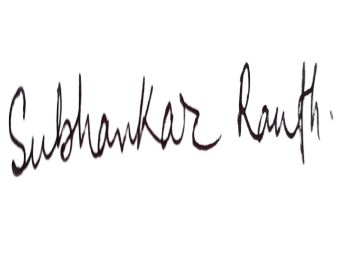 Subhankar Rauth.